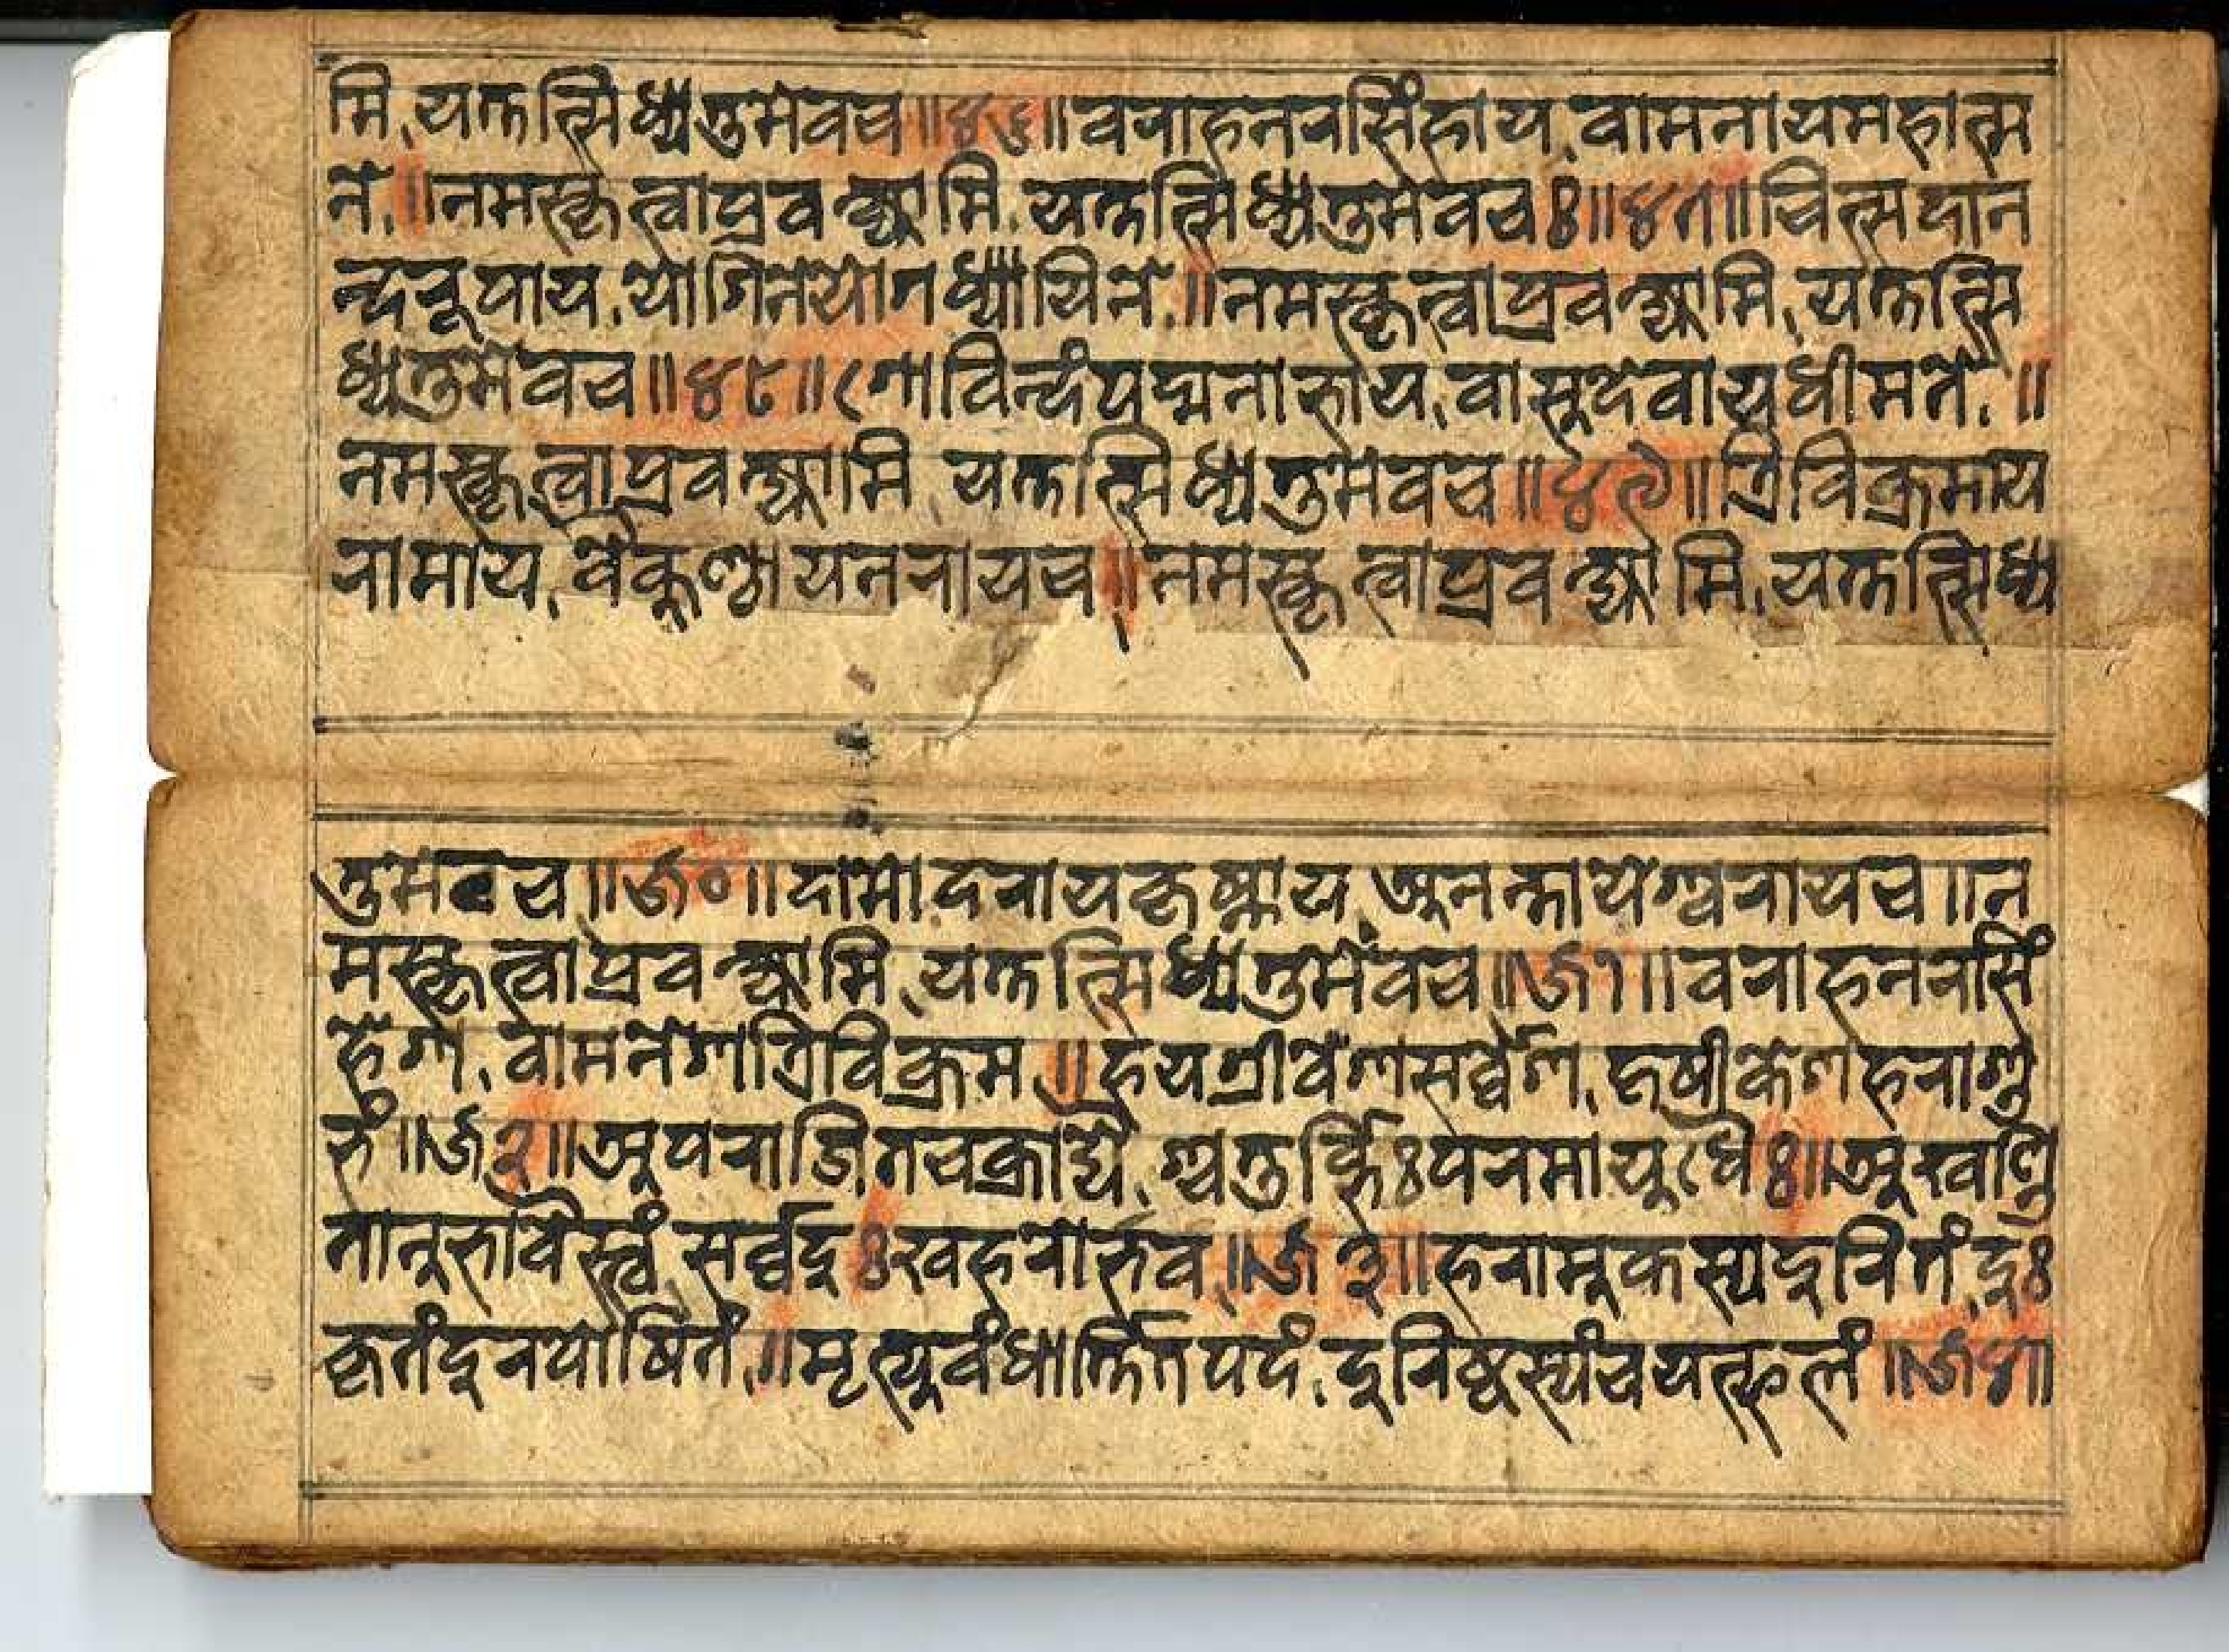 मि.यत्तत्सिध्यतुमेवच॥४६॥वराहनरसिंहाय.वामनायमहात्म
ने.॥नमस्कृत्वाप्रवक्ष्यामि.यत्तत्सिध्यतुमेवचः॥४७॥चित्सदान
न्दरूपाय.योगिनेयोगध्यायिने.॥नमस्कृत्वाप्रवक्ष्यामि.यत्तत्सि
ध्यतुमेवच॥४८॥गोविन्दंपद्मनाभाय.वासुदेवायधीमते.॥
नमस्कृत्वाप्रवक्ष्यामि यत्तत्सिध्यतुमेवच॥४९॥त्रिविक्रमाय
रामाय.वैकुण्ठायनरायच॥नमस्कृत्वाप्रवक्ष्यामि.यत्तत्सिध्य
तुमेवच॥५०॥दामोदरायकृष्णाय.अनन्तायेश्वरायच॥न
मस्कृत्वाप्रवक्ष्यामि.यत्तत्सिध्यतुमेवच॥५१॥वराहनरसिं
हेश.वामनेशत्रिविक्रम.॥हयग्रीवेशसर्व्वेश.हृषीकेशहराशु
भं॥५२॥अपराजितचक्राद्यै.श्चतुर्भिःपरमायुधैः॥अखण्डि
तानुभावैस्त्वं सर्व्वदुःखहरोभव.॥५३॥हरामुकस्यदुरितं.दुः
कृतंदुरयोषितं.॥मृत्युवंधार्त्तितपदं.दुरिष्टस्यंचयत्फलं॥५४॥